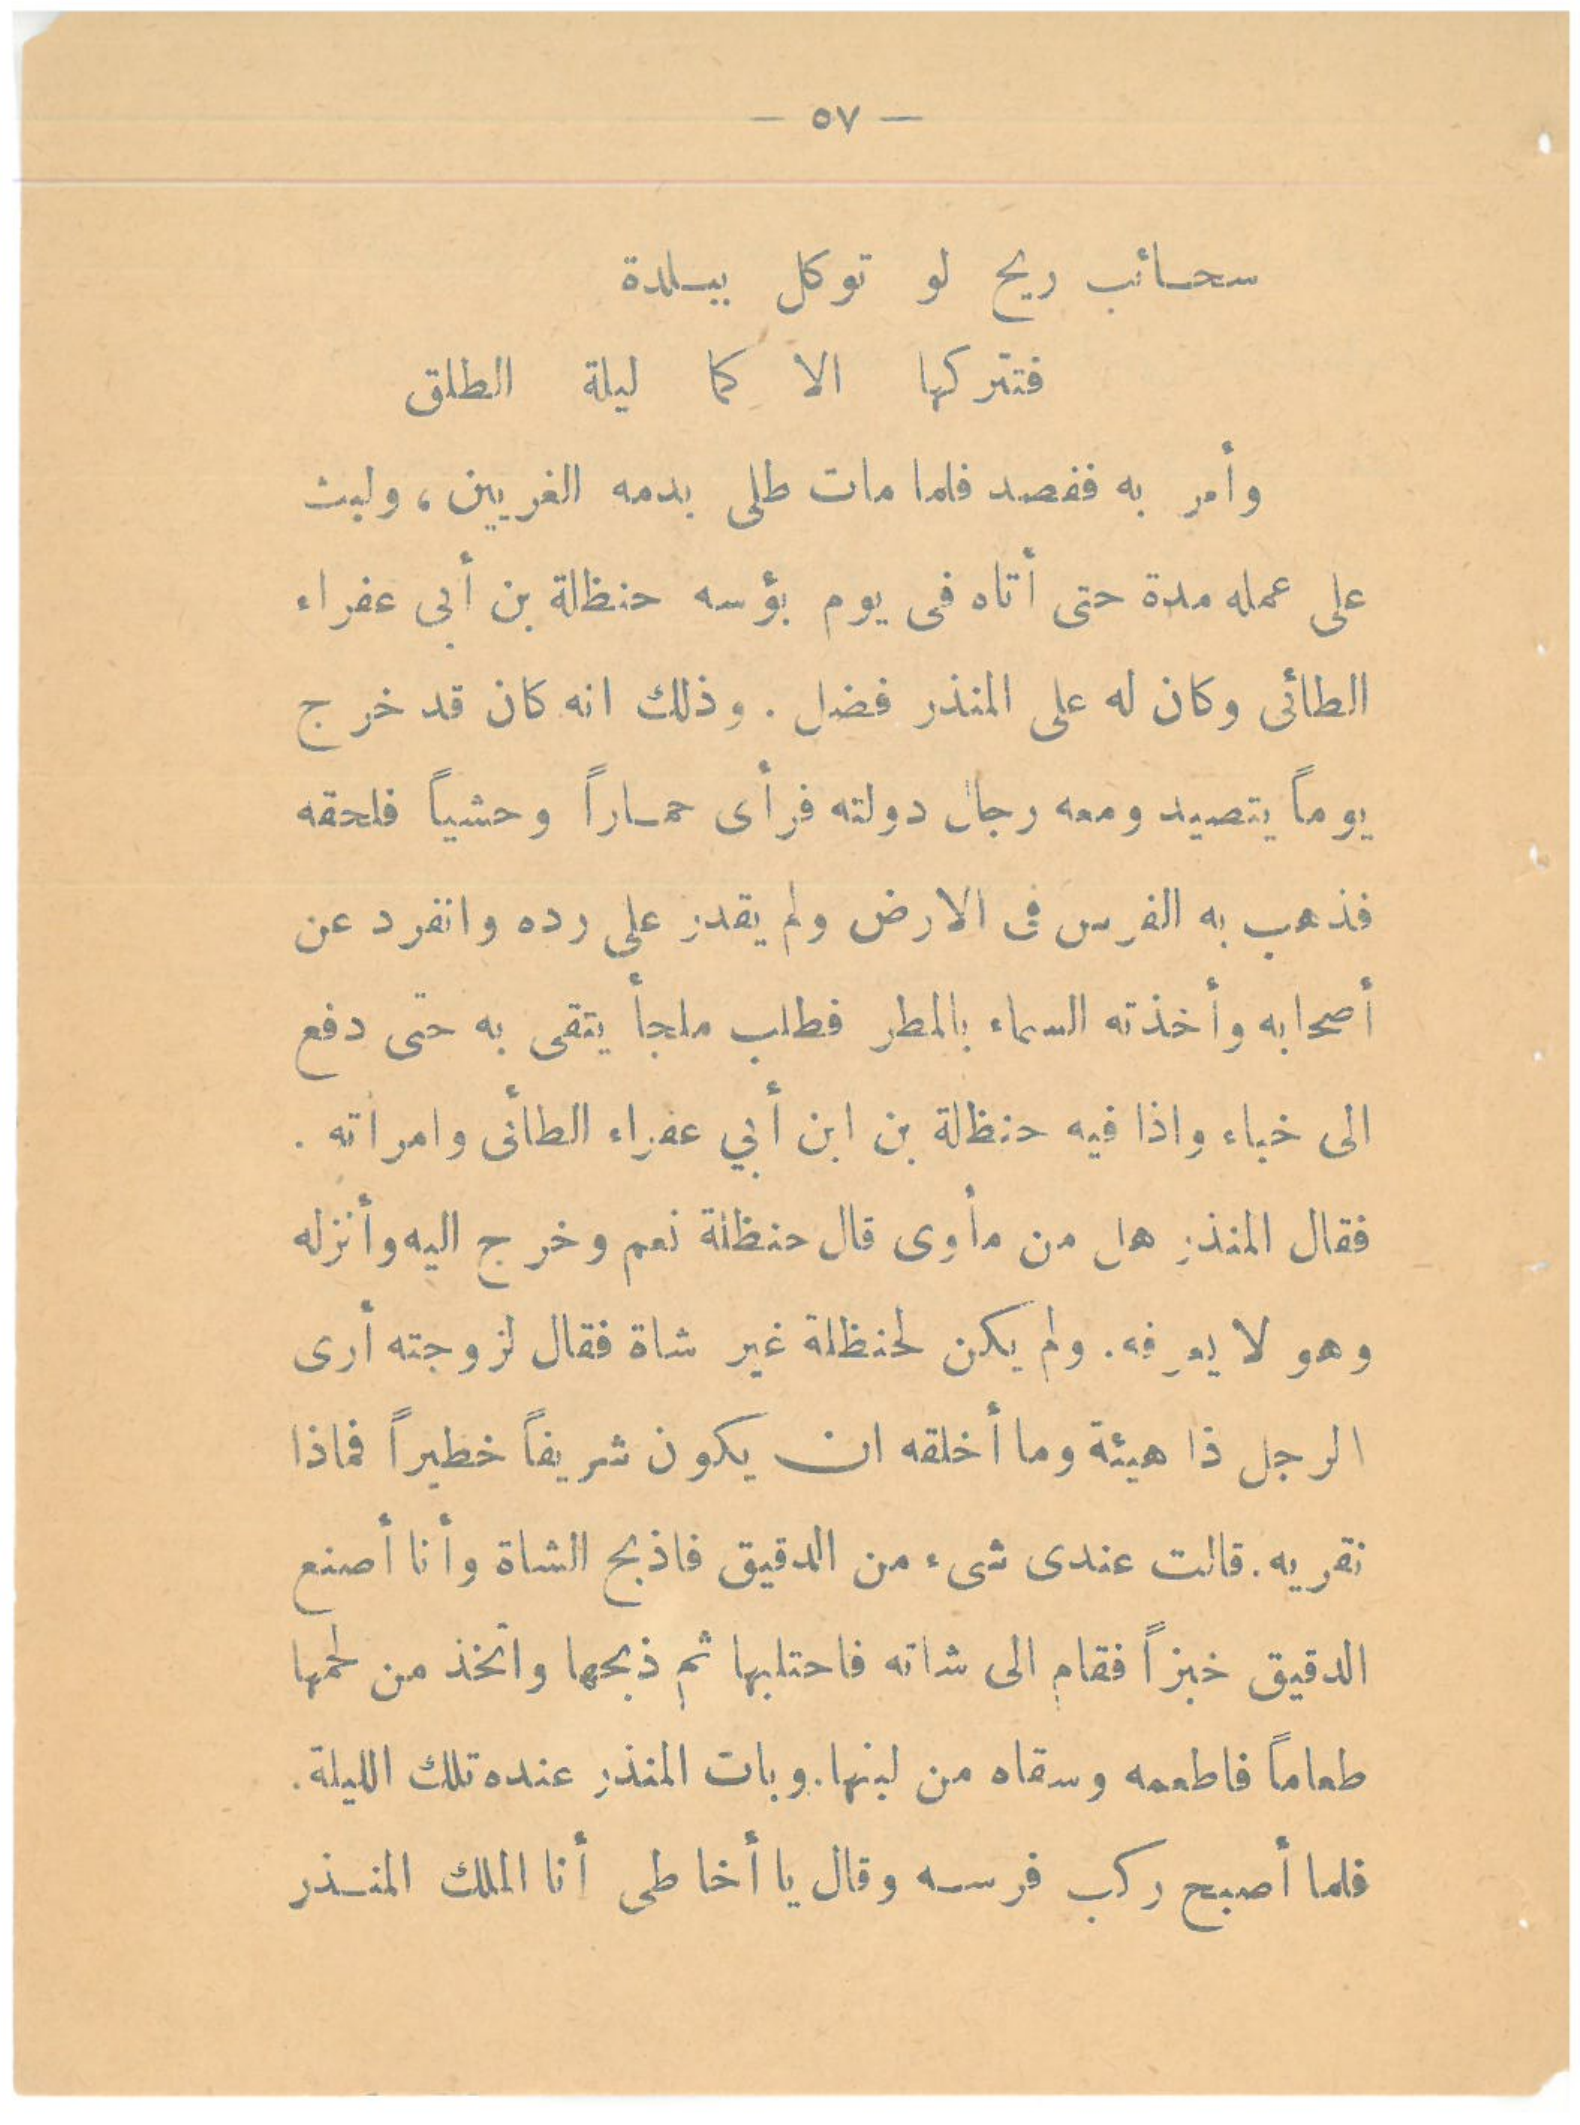 — ٥٧ —
سحائب ريح لو توكل ببلدة
فتتركها الا كما ليلة الطلق
وأمر به ففصد فلما مات طلى بدمه الغريين ، ولبث
على عمله مدة حتى أتاه فى يوم بؤسه حنظلة بن أبي عفراء
الطائى وكان له على المنذر فضل . وذلك انه كان قد خرج
يوماً يتصيد ومعه رجال دولته فرأى حماراً وحشياً فلحقه
فذهب به الفرس فى الارض ولم يقدر على رده وانفرد عن
أصحابه وأخذته السماء بالمطر فطلب ملجأ يتقى به حتى دفع
الى خباء واذا فيه حنظلة بن ابن أبي عفراء الطائى وامرأته .
فقال المنذر هل من مأوى قال حنظلة نعم وخرج اليه وأنزله
وهو لا يعرفه . ولم يكن لحنظلة غير شاة فقال لزوجته أرى
الرجل ذا هيئة وما أخلقه ان يكون شريفاً خطيراً فماذا
نقريه . قالت عندى شىء من الدقيق فاذبح الشاة وأنا أصنع
الدقيق خبزاً فقام الى شاته فاحتلبها ثم ذبحها واتخذ من لحمها
طعاماً فاطعمه وسقاه من لبنها . وبات المنذر عنده تلك الليلة .
فلما أصبح ركب فرسه وقال يا أخا طى أنا الملك المنذر